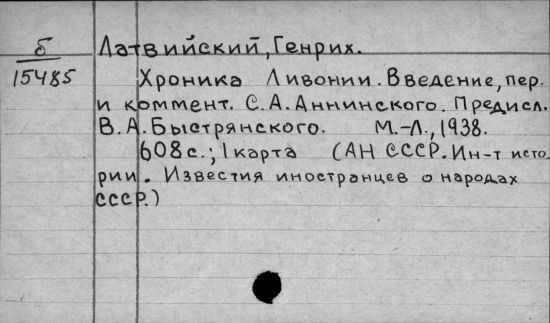 Б
15485
Латвийский, Генрих.
Хроника Ливонии. Введение, пер.
и коммент. С.А. Аннинского. Предисл.
В.А. Быстрянского. М.-Л., 1938.
608 с.; 1 карта (АН СССР. Ин-т исто
рии. Известия иностранцев о народах
СССР.)